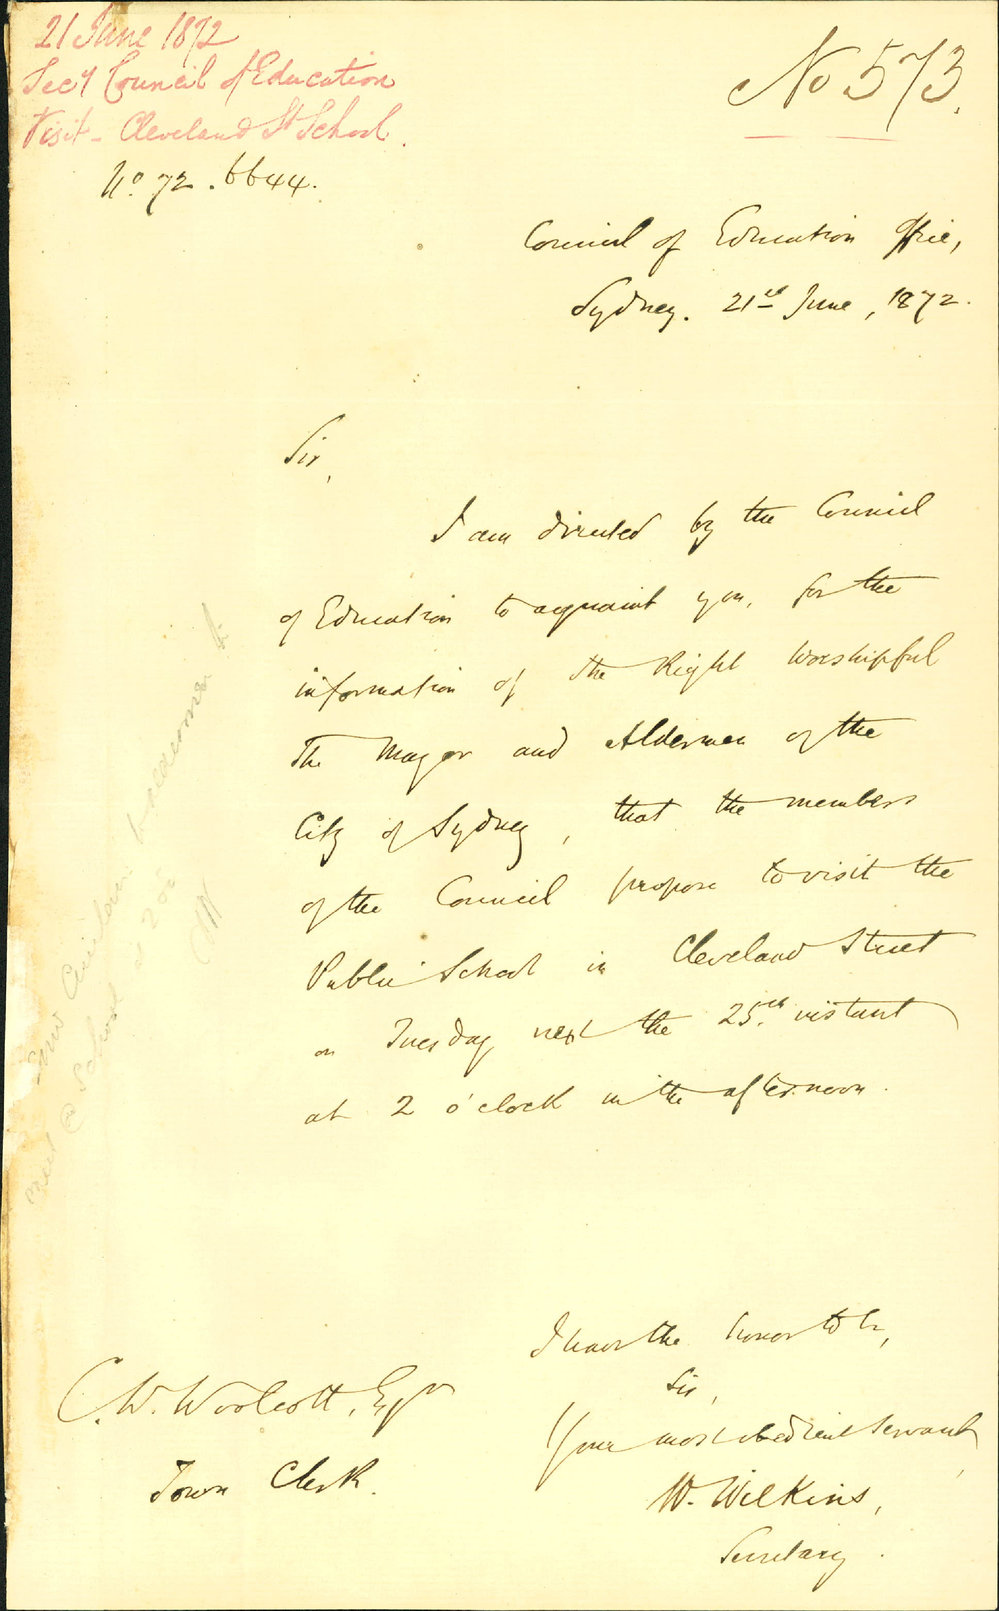 21 June 1872
Secy Council of Education
Visit - Cleveland St School.
No 573.
No 72.6644.
Council of Education Office,
Sydney. 21st June, 1872.
Sir,
I am directed by the Council
of Education to acquaint you, for the
information of the Right Worshipful
the Mayor and Aldermen of the
City of Sydney, that the members
of the Council propose to visit the
Public School in Cleveland Street
on Tuesday next the 25th instant
at 2 o'clock in the afternoon.
I have the honor to be,
Sir,
Your most obedient Servant,
W. Wilkins,
Secretary.
C. W. Woolcott, Esqr
Town Clerk.
School at 2